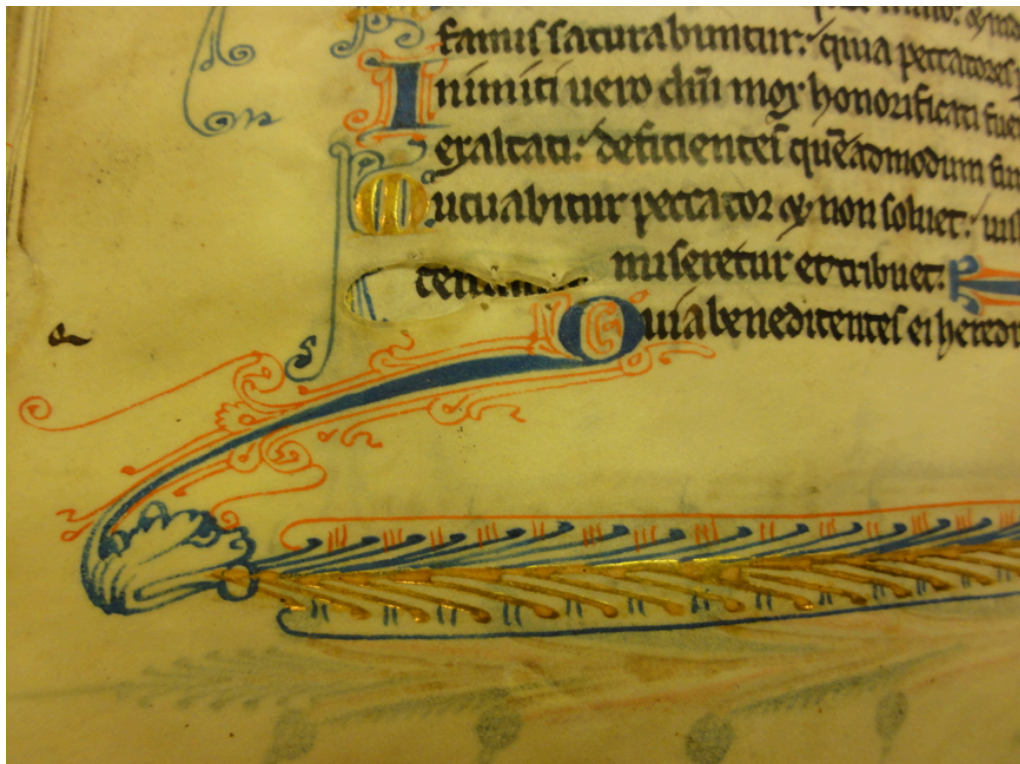 famis saturabuntur: quia peccatores
Inimici uero dñi mox honorificati fue
exaltati: deficientes quēadmodum fu
Mutuabitur peccator & non soluet: ius
miseretur et tribuet.
Quia benedicentes ei heredi